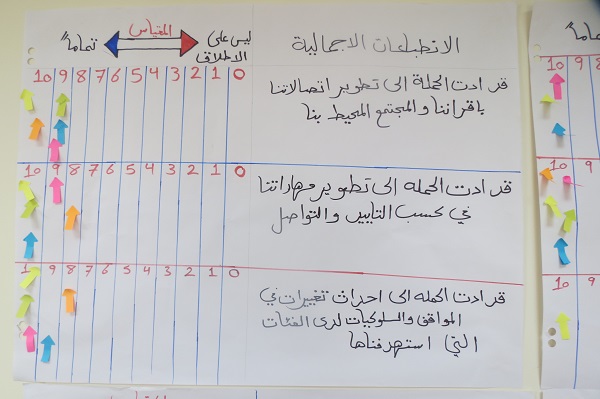 الانطباعات الاجمالية
ليس على الاطلاق
المقياس
تماماً
10 9 8 7 6 5 4 3 2 1 0
قد ادت الحملة الى تطوير اتصالاتنا
باقراننا والمجتمع المحيط بنا
10 9 8 7 6 5 4 3 2 1 0
قد ادت الحمله الى تطوير مهاراتنا
في كسب التاييد والتواصل
9 8 7 6 5 4 3 2 1 0
قد ادت الحمله الى احداث تغييرات في
المواقف والسلوكيات لدى الفئات
التي استهدفناها
10 9 8
10 9
10 9